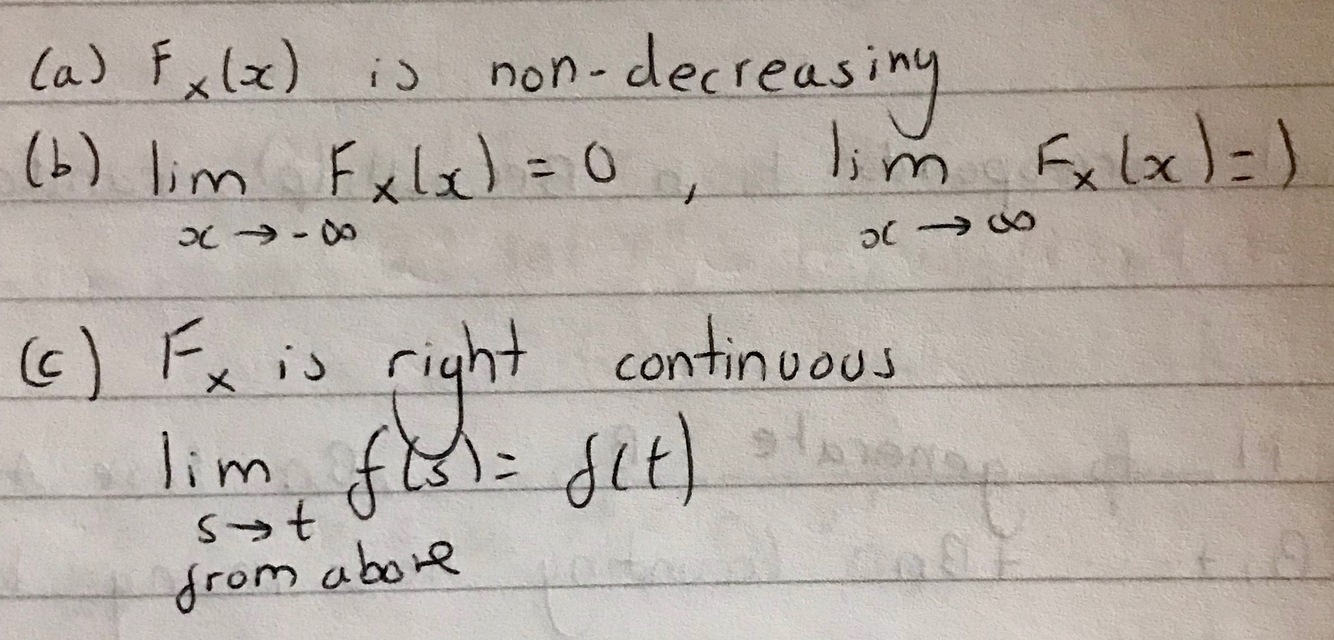 (a) Fₓ(x) is non-decreasing
(b) lim Fₓ(x) = 0 , lim Fₓ(x) = 1
x → -∞ x → ∞
(c) Fₓ is right continuous
lim f(s) = f(t)
s → t
from above